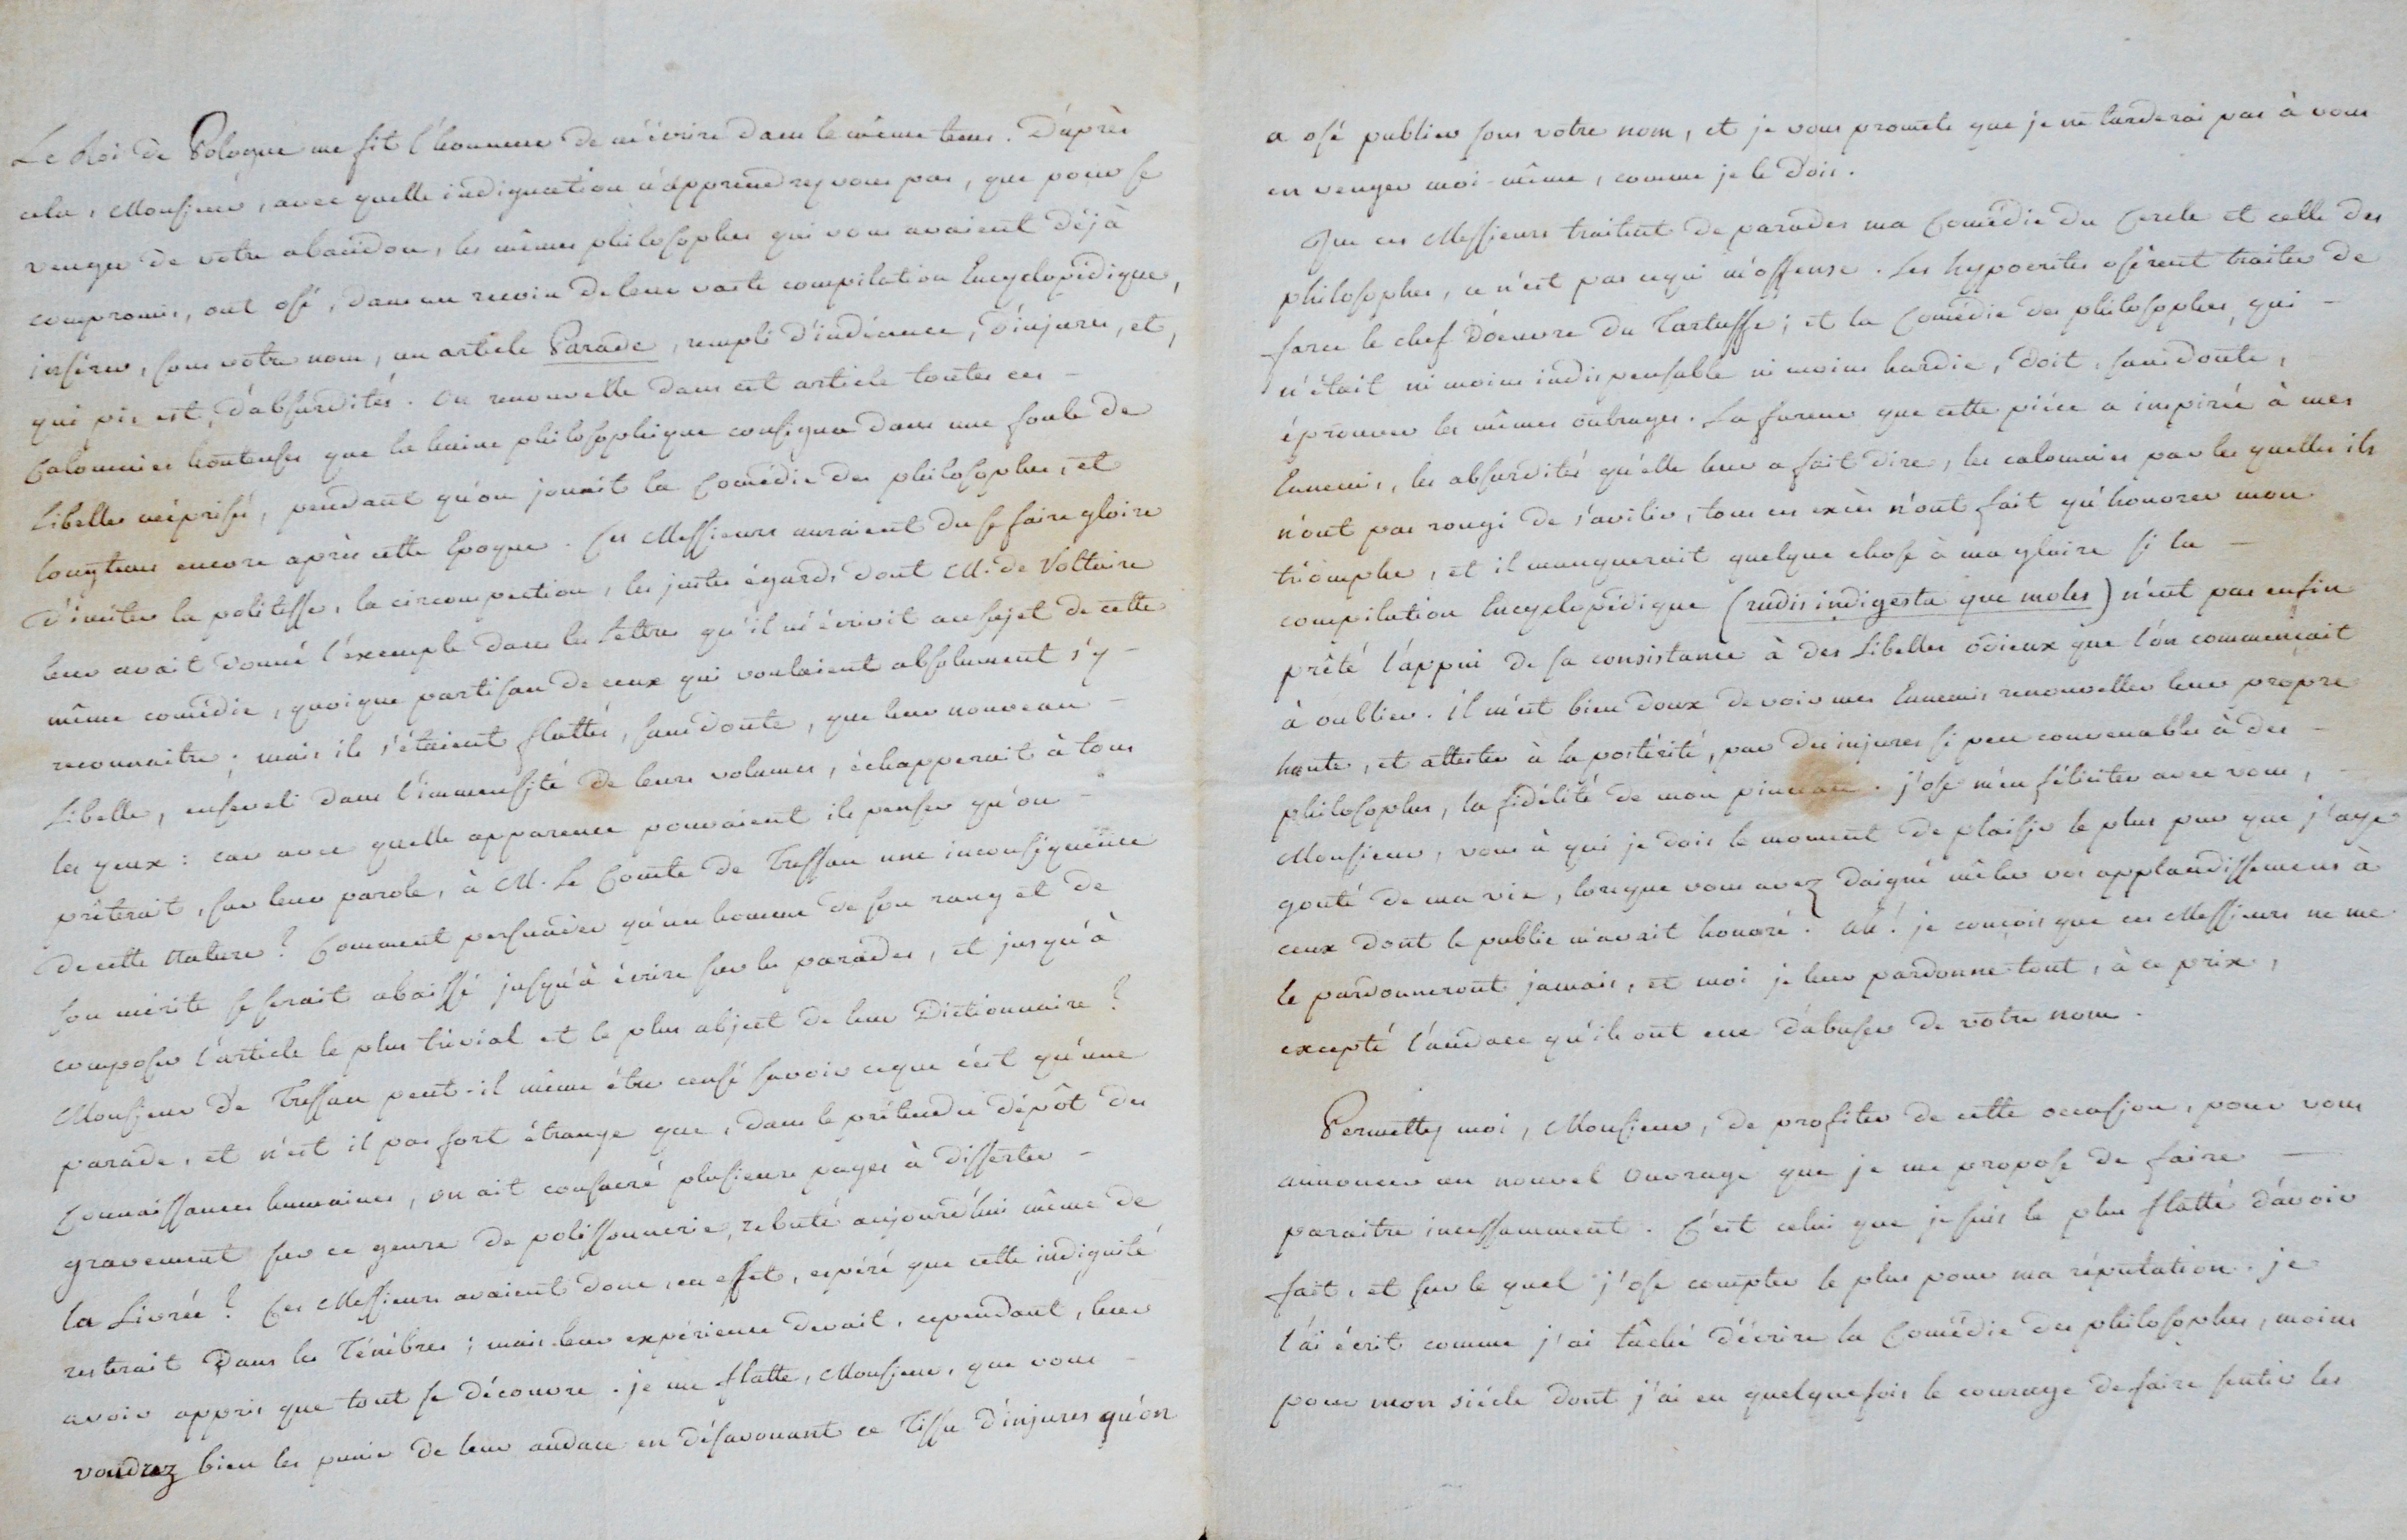 Le Roi de Pologne me fit l'honneur de m'écrire dans le même tems. D'après
cela, Monsieur, avec quelle indignation n'apprendrez vous pas, que pour se
venger de votre abandon, les mêmes philosophes qui vous avaient déjà
compromis, ont osé, dans un recoin de leur vaste compilation Encyclopédique,
insérer, sous votre nom, un article Parade, rempli d'indécence, d'injures, et,
qui pis est, d'absurdités. On renouvelle dans cet article toutes ces -
Calomnies honteuses que la haine philosophique consigna dans une foule de
Libelles méprisés, pendant qu'on jouait la Comédie des philosophes, et
longtems encore après cette Epoque. Ces Messieurs auraient du se faire gloire
d'imiter la politesse, la circonspection, les justes égards dont M. de Voltaire
leur avait donné l'éxemple dans les Lettres qu'il m'écrivit au sujet de cette
même comédie, quoique partisan de ceux qui voulaient absolument s'y -
reconnaitre; mais ils s'étaient flattés, sans doute, que leur nouveau -
Libelle, enseveli dans l'immensité de leurs volumes, échapperait à tous
les yeux: car avec quelle apparence pouvaient ils penser qu'on -
prêterait, sur leur parole, à M. Le Comte de Tressan une inconséquence
de cette Nature? Comment persuader qu'un homme de son rang et de
son mérite se serait abaissé jusqu'à écrire sur les parades, et jusqu'à
composer l'article le plus trivial et le plus abject de leur Dictionnaire?
Monsieur de Tressan peut-il même être censé savoir ce que c'est qu'une
parade, et n'est il pas fort étrange que, dans le prétendu dépôt des
Connaissances humaines, on ait consacré plusieurs pages à disserter -
gravement sur ce genre de polissonnerie, rebuté aujourd'hui même de
la Livrée? Ces Messieurs avaient donc, en effet, espéré que cette indignité
resterait dans les Ténébres; mais leur expérience devait, cependant, leur
avoir appris que tout se découvre. je me flatte, Monsieur, que vous -
voudrez bien les punir de leur audace en désavouant ce Tissu d'injures qu'on
a osé publier sous votre nom, et je vous promets que je ne tarderai pas à vous
en venger moi-même, comme je le dois.
Que ces Messieurs traitent de parades ma Comédie du Cercle et celle des
philosophes, ce n'est pas ce qui m'offense. Les hypocrites osèrent traiter de
farce le chef d'oeuvre du Tartuffe; et la Comédie des philosophes, qui -
n'était ni moins indispensable ni moins hardie, doit, sans doute,
éprouver les mêmes outrages. La fureur que cette piéce a inspirée à mes
Ennemis, les absurdités qu'elle leur a fait dire, les calomnies par les quelles ils
n'ont pas rougi de s'avilir, tous ces excès n'ont fait qu'honorer mon
triomphe, et il manquerait quelque chose à ma gloire si la -
compilation Encyclopédique (rudis indigesta que moles) n'eut pas enfin
prêté l'appui de sa consistance à des Libelles odieux que l'on commençait
à oublier. il m'est bien doux de voir mes Ennemis renouveller leur propre
honte, et attester à la postérité, par des injures si peu convenables à des -
philosophes, la fidélité de mon pinceau. j'ose m'en féliciter avec vous, -
Monsieur, vous à qui je dois le moment de plaisir le plus pur que j'aye
gouté de ma vie, lorsque vous avez daigné mêler vos applaudissemens à
ceux dont le public m'avait honoré. Ah! je conçois que ces Messieurs ne me
le pardonneront jamais, et moi je leur pardonne tout, à ce prix,
excepté l'audace qu'ils ont eue d'abuser de votre nom.
Permettez moi, Monsieur, de profiter de cette occasion, pour vous
annoncer un nouvel Ouvrage que je me propose de faire -
paraitre incessamment. C'est celui que je suis le plus flatté d'avoir
fait, et sur le quel j'ose compter le plus pour ma réputation. je
l'ai écrit comme j'ai tâché d'écrire la Comédie des philosophes, moins
pour mon siécle dont j'ai eu quelquefois le courage de faire sentir les